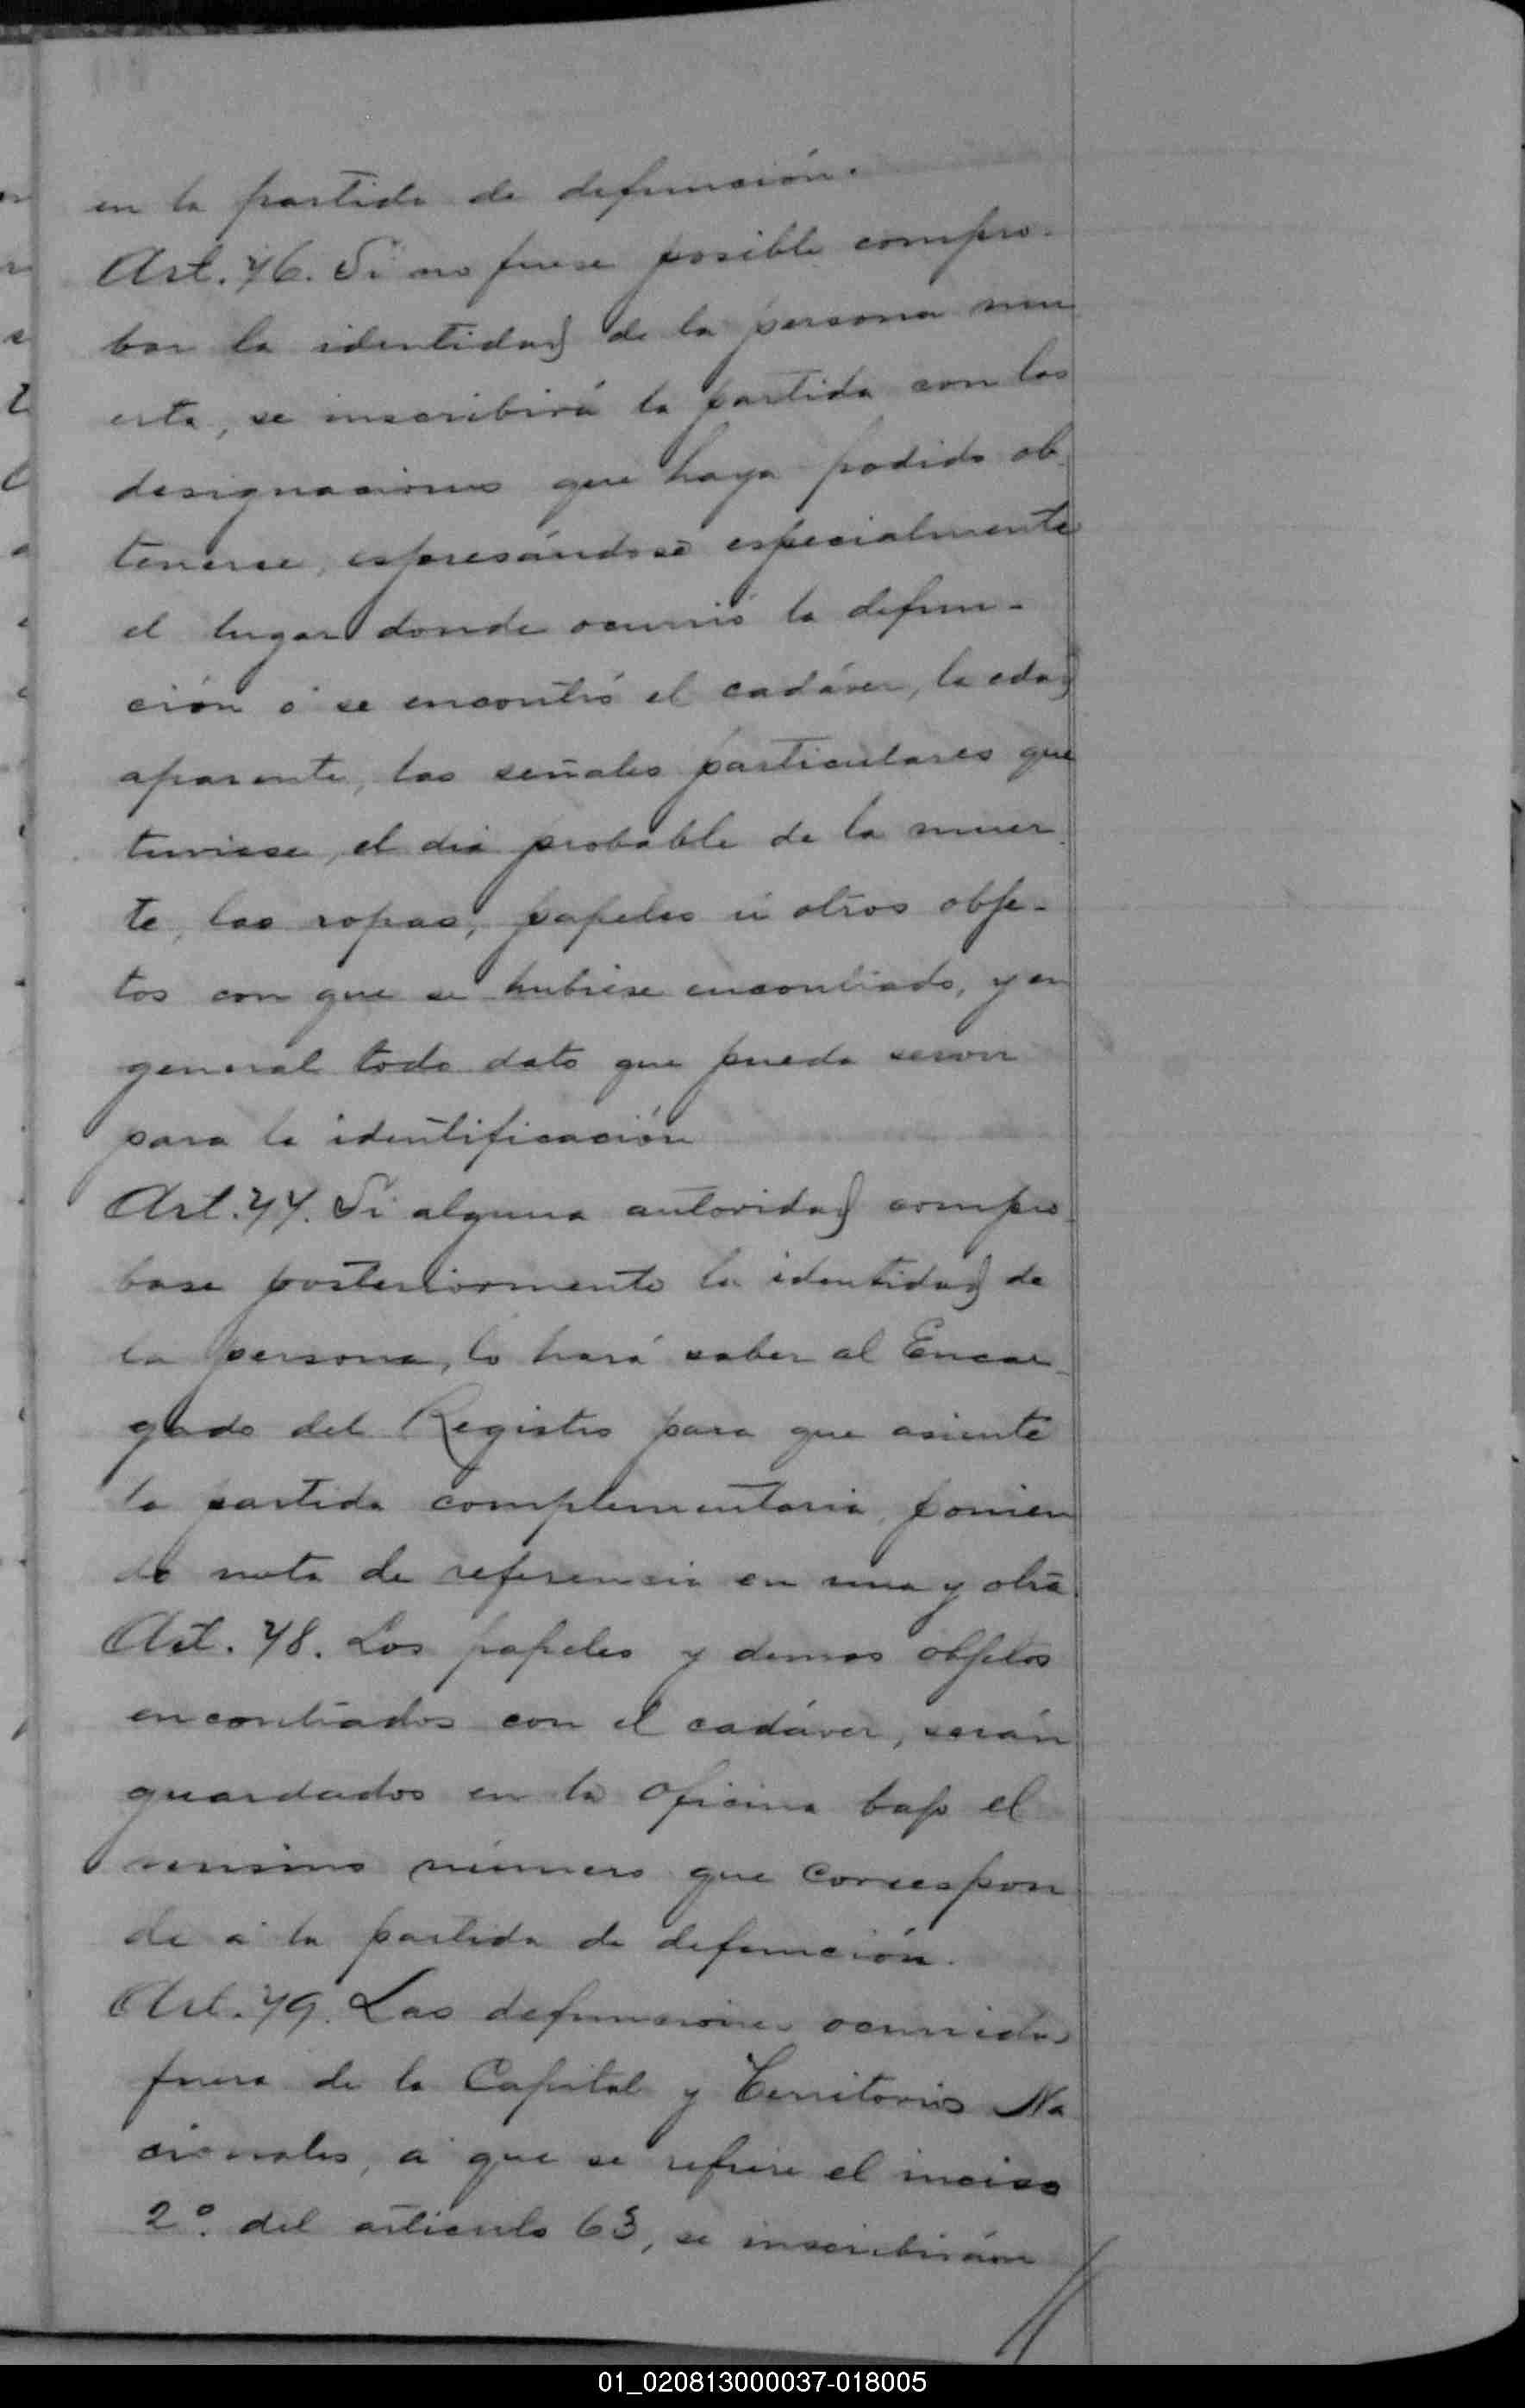 en la partida de defunción.
Art. 76. Si no fuese posible compro-
bar la identidad de la persona mu
erta, se inscribirá la partida con las
designaciones que haya podido ob
tenerse, espresándose especialmente
el lugar donde ocurrió la defun-
ción ó se encontró el cadáver, la edad
aparente, las señales particulares que
tuviese, el dia probable de la muer
te, las ropas, papeles ú otros obje-
tos con que se hubiese encontrado, y en
general todo dato que pueda servir
para la identificación
Art. 77. Si alguna autoridad compro
base posteriormente la identidad de
la persona, lo hará saber al Encar-
gado del Registro para que asiente
la partida complementaria, ponien
do nota de referencia en una y otra.
Art. 78. Los papeles y demas objetos
encontrados con el cadáver, serán
guardados en la oficina bajo el
mismo número que correspon
de á la partida de defunción.
Art. 79. Las defunciones ocurridas
fuera de la Capital y Territorios Na
cionales, a que se refiere el inciso
2º. del articulo 63, se inscribirán
01_020813000037-018005